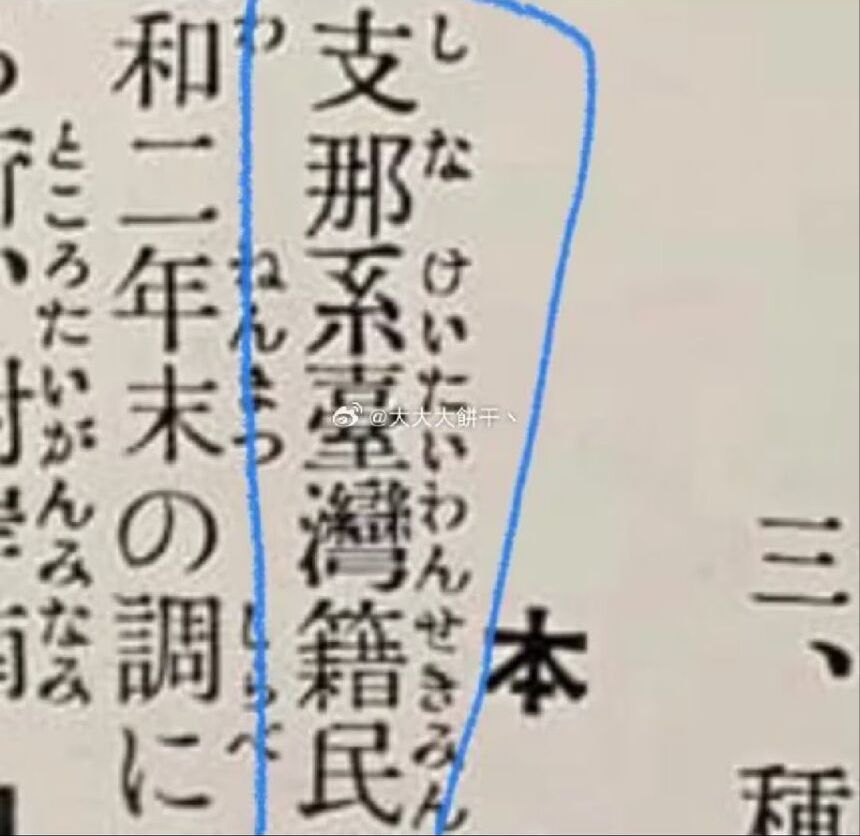 三、種
本
支那系臺灣籍民
しなけいたいわんせきみん
和二年末の調に
わねんまつしらべ
ところたいがんみなみ
@大大大餅干丶